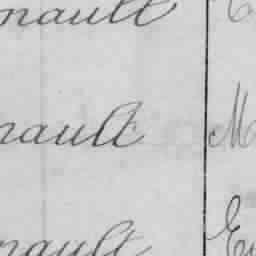 nault
nault M
nault E